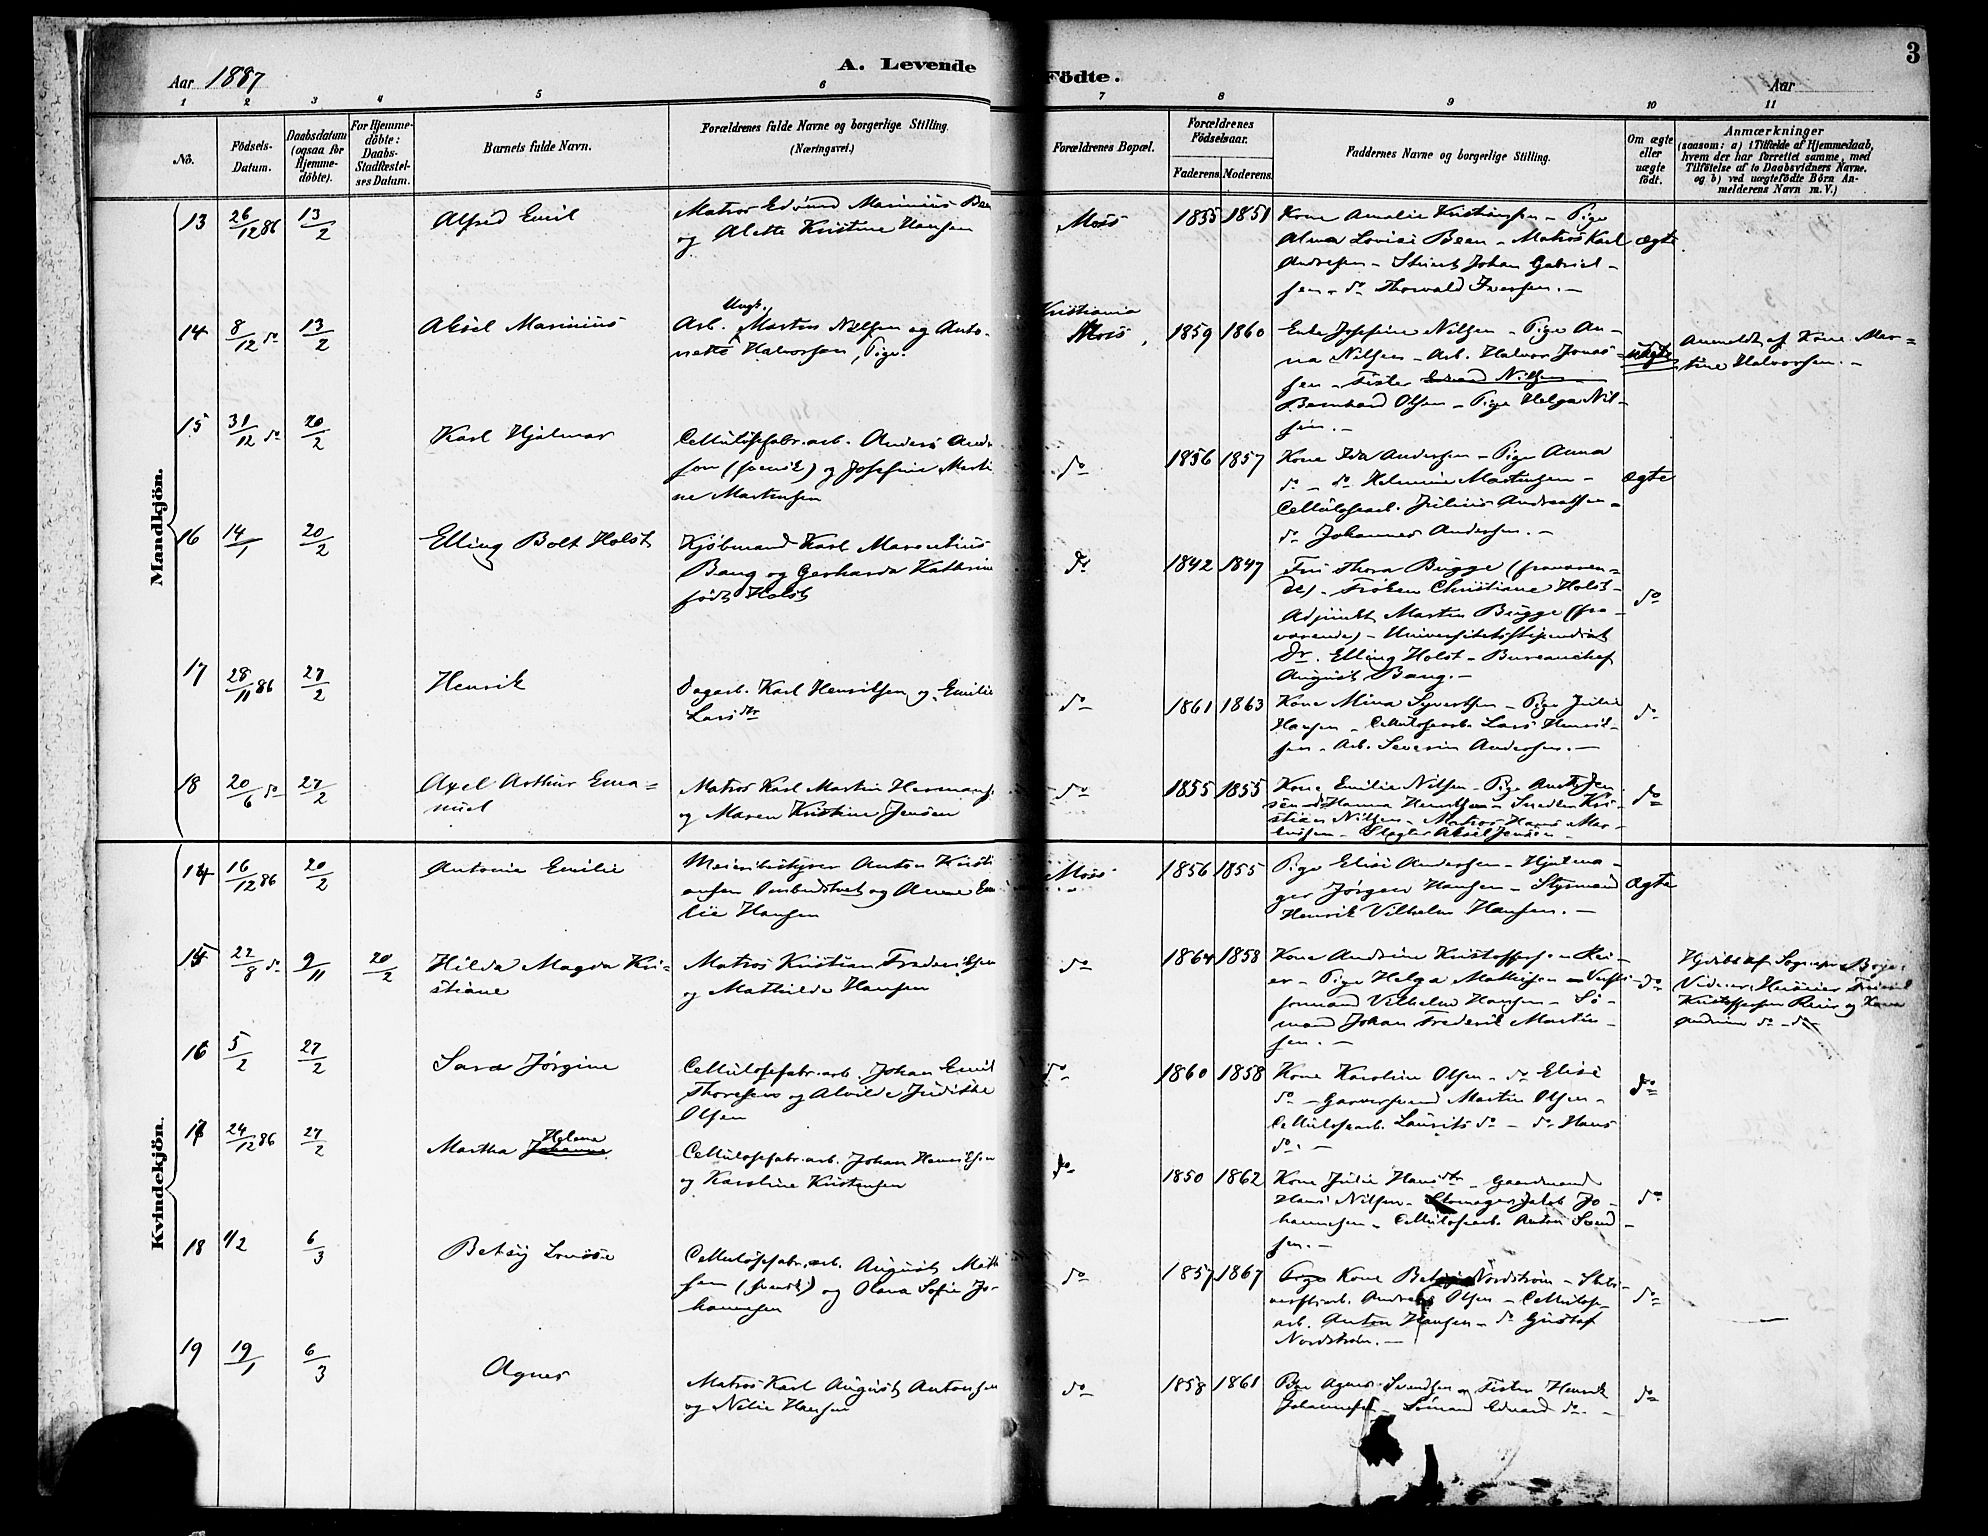 3
A. Levende Födte.
Aar 1887
Aar
1 2 3 4 5 6 7 8 9 10 11
No.
Födsels-Datum.
Daabsdatum (ogsaa for Hjemme-döbte).
For Hjemme-döbte: Daabs-Stadfæstel-ses Datum.
Barnets fulde Navn.
Forældrenes fulde Navne og borgerlige Stilling. (Næringsvei.)
Forældrenes Bopæl.
Forældrenes Födselsaar.
Faderens. Moderens.
Faddernes Navne og borgerlige Stilling.
Om ægte eller uægte födt.
Anmærkninger
(saasom: a) i Tilfælde af Hjemmedaab,
hvem der har forrettet samme, med
Tilföielse af to Daabsvidners Navne,
og b) ved uægtefödte Börn An-
melderens Navn m. V.)
Mandkjön.
13 26/12 86 13/2 Alfred Emil
Matros Edvard Marinius Been
og Alette Kristine Hansen
Moss 1855 1851
Kone Amalie Kristiansen - Pige
Alma Lovise Been - Matros Karl
Andresen - Stuert Johan Gabriel-
sen - do Thorvald Iversen. -
ægte
14 8/12 do 13/2 Aksel Marinius
Ungk.
Arb. Martin Nilsen og Anto-
nette Halvorsen, Pige.
Kristiania
Moss 1859 1860
Enke Josefine Nilsen - Pige An-
na Nilsen - Arb. Halvor Jonas-
sen - Fisker
Bernhard Olsen - Pige Helga Nil-
sen. -
uægte
Anmeldt af Kone Mar-
tine Halvorsen. -
15 31/12 do 20/2 Karl Hjalmar
Cellulosefabr.arb. Anders Anders
son (svensk) og Josefine Marti
ne Martinsen
do 1856 1857
Kone Ida Andersen - Pige Anna
do - do Helmine Martinsen -
Cellulosearb. Julius Andreassen -
do Johannes Andersen. -
ægte
16 14/1 20/2 Elling Bolt Holst
Kjöbmand Karl Marentius
Bang og Gerharda Kathrine
födt Holst
do 1842 1847
Fru Thora Bugge (fraværen-
de) - Fröken Christiane Holst -
Adjunkt Martin Bugge (fra-
værende) - Universitetsstipendiat
Dr. Elling Holst - Bureauchef
August Bang. -
do
17 28/11 86 27/2 Henrik
Dagarb. Karl Henriksen og Emilie
Larsdtr
do 1861 1863
Kone Mina Syvertsen - Pige Julie
Hansen - Cellulosearb. Lars Henrik-
sen - Arb. Severin Andersen. -
do
18 20/6 do 27/2 Axel Arthur Ema-
nuel
Matros Karl Martin Hermansen
og Maren Kristine Jensen
do 1855 1855
Kone Emilie Nilsen - Pige Jen-
sen - do Hanna Henriksen - Snedker Kri-
stian Nilsen - Matros Hans Mar-
tinsen - Slagter Aksel Jensen -
do
Kvindekjön.
14 16/12 86 20/2 Antonie Emilie
Meieribestyrer Anton Kristi
ansen og Anne Emi
lie Hansen
Moss 1856 1855
Pige Elise Andersen - Hjulma-
ger Jörgen Hansen - Styrmand
Henrik Vilhelm Hansen. -
ægte
15 22/8 do 9/11 20/2 Hilda Magda Kri-
stiane
Matros Kristian Frederiksen
og Mathilde Hansen
do 1864 1858
Kone Andrine Kristoffersen Rei-
er - Pige Helga Mathisen -
formand Vilhelm Hansen - Sö-
mand Johan Frederik Martin-
sen. -
do
Kristoffersen Reier og Kone
Andrine do - do
16 5/2 27/2 Sara Jörgine
Cellulosefabr.arb. Johan Emil
Thoresen og Alvilde Judithe
Olsen
do 1860 1858
Kone Karoline Olsen - do Elise
do - Garversvend Martin Olsen -
Cellulosearb. Laurits do - do Hans
do. -
do
17 24/12 86 27/2 Martha Johanne Helene
Cellulosefabr.arb. Johan Henriksen
og Karoline Kristensen
do 1850 1862
Kone Julie Hansdtr - Gaardmand
Hans Nilsen - Skomager Jakob Jo-
hannesen - Cellulosearb. Anton Svend-
sen. -
do
18 1/2 6/3 Betsy Lovise
Cellulosefabr.arb. August Matt
son (svensk) og Olava Sofie Jo-
hannesen
do 1857 1867
Kone Betsy Nordström -
arb. Andreas Olsen - Cellulose-
arb. Anton Hansen - do Gustaf
Nordström. -
do
19 19/1 6/3 Agnes
Matros Karl August Antonsen
og Nilie Hansen
do 1858 1861
Pige Agnes Svendsen - Fisker Henrik
Johannesen - Sömand Edvard do -
do